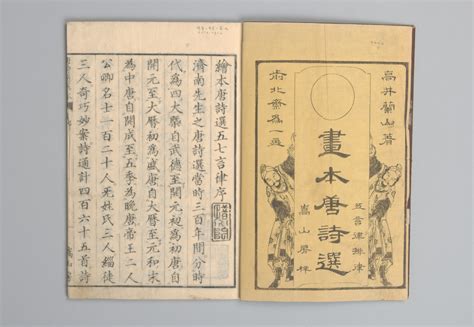 高井蘭山著
畫本唐詩選
五言律排律
嵩山房梓
繪本唐詩選五七言律序
濟南先生之唐詩選當時三百年間分時
代為四大率自武德至開元初為初唐自
開元至大曆初為盛唐自大曆至元和末
為中唐自開成至五季為晩唐帝王二人
公卿名士一百二十人无姓氏三人緇徒
三人奇巧妙案詩通計四百六十五首詩